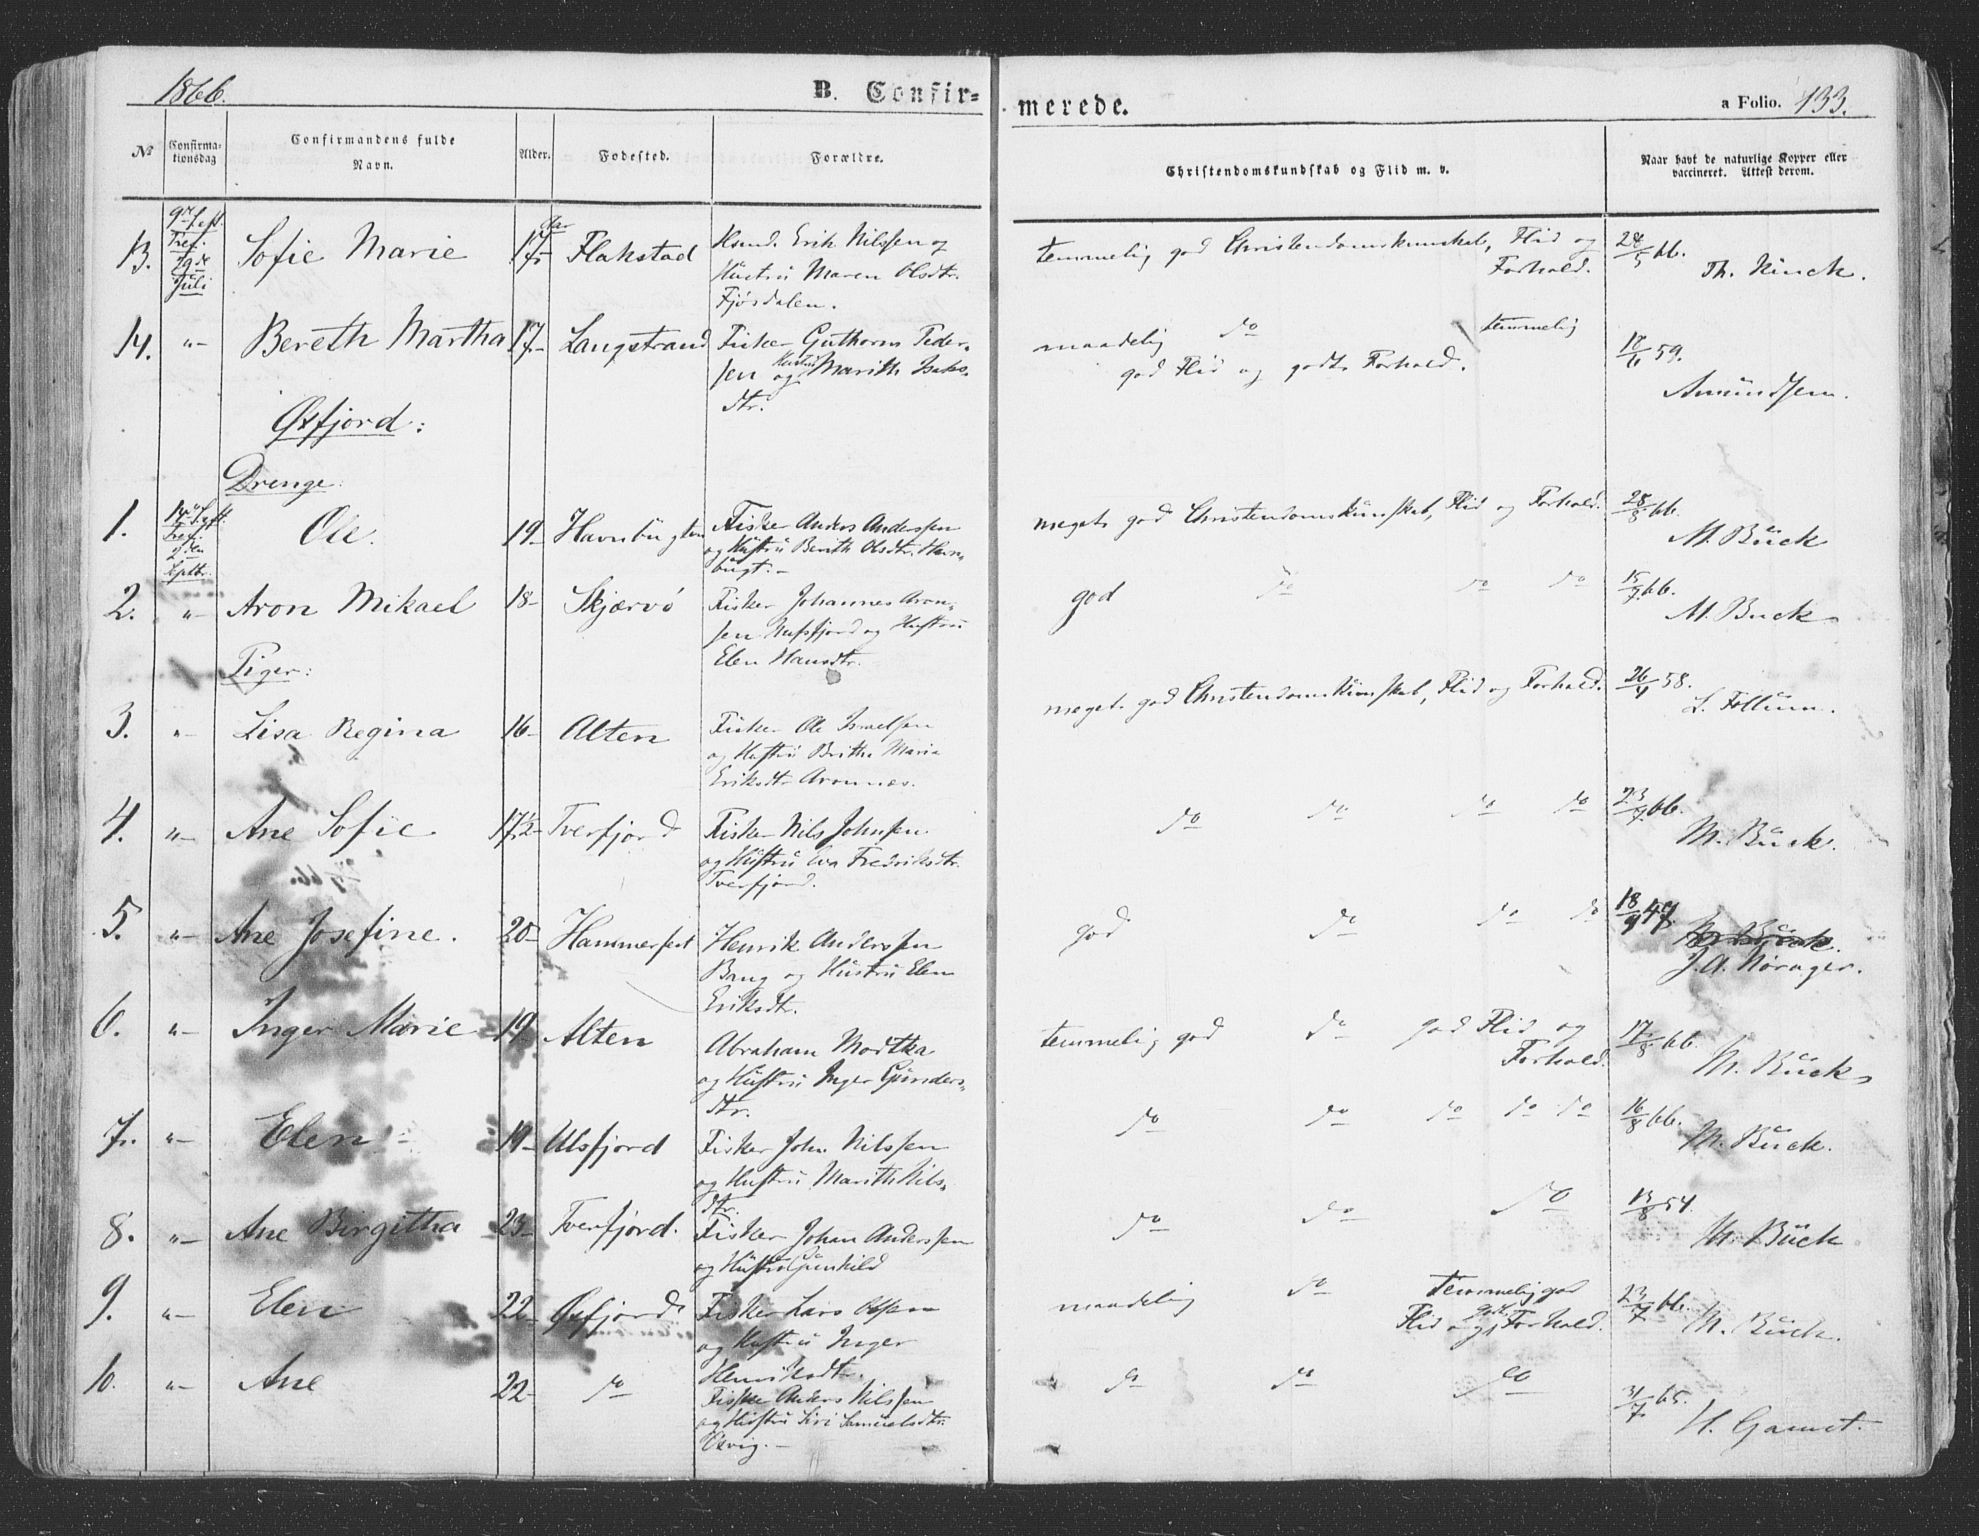 1866.
B. Confir-
merede.
a Folio. 133.
No
Confirma-
tionsdag
Confirmandens fulde
Navn.
Alder.
Fodested.
Forældre.
Christendomskundskab og Flid m. v.
Naar havt de naturlige Kopper eller
vaccineret. Attest derom.
9de Sept.
Præs.
29de
Juli
13. Sofie Marie 17 Aar Flakstad
Huusmd. Erik Nilssen og
Hustru Maren Olsdtr.
Fjørdalen.
temmelig god Christendomskundskab, Flid og
Forhold.
28/5 66.
Th. Kinck.
14. "- Bereth Martha 17- Langstrand
Fisker Guthorm Peder-
sen og Hustru Marith Isaks-
dtr.
maadelig do temmelig
god Flid og godt Forhold.
18/6 59.
Amundsen.
Øxfjord:
Drenge:
1. Ole. 19- Havnbugten
Septbr.
Fisker Anders Anderssen
og Hustru Berith Olsdtr. Havn-
bugt.-
meget god Christendomskundskab, Flid og Forhold.
28/8 66.
M. Buck
2. "- Aron Mikael 18- Skjærvø
Fisker Johannes Aron-
sen Nufsfjord og Hustru
Elen Hansdtr.
god do do do
15/7 66.
M. Buck
Piger:
3. "- Lisa Regina 16- Alten
Fisker Ole Israelsen
og Hustru Brithe Maria
Eriksdtr Aronnæs.
meget god Christendomskundskab, Flid og Forhold.
26/4 58.
L. Follum.
4. "- Ane Sofie 17½- Tverfjord
Fisker Nils Johnsen
og Hustru Eva Fredriksdtr.
Tverfjord.
do do do do
23/7 66.
M. Buck.
5. "- Ane Josefine. 20- Hammerfest
Henrik Anderssen
Bang og Hustru Elen
Eriksdtr.
god do do do
18/9 47.
J. A. Norager.
6. "- Inger Marie 19- Alten
Abraham Modtka
og Hustru Inger Gunders-
dtr.
temmelig god do god Flid og
Forhold.
17/8 66.
M. Buck
7. "- Elen 19- Ulsfjord
Fisker John Nilssen
og Hustru Marith Nils-
dtr.
do do do do do
16/8 66.
M. Buck.
8. "- Ane Birgitha 23- Tverfjord.
Fisker Johan Anderssen
og Hustru Gunhild
do do do
13/8 54.
M. Buck
9. "- Elen 22- Øxfjord
Fisker Lars Olsen
og Hustru Inger
Henriksdtr.
maadelig do temmelig god
Flid og godt Forhold.
23/7 66.
M. Buck.
10. "- Ane 22- do
Fisker Anders Nilssen
og Hustru Siri Samuelsdtr.
Ulsvig.-
do do do
31/7 65.
H. Gamst.